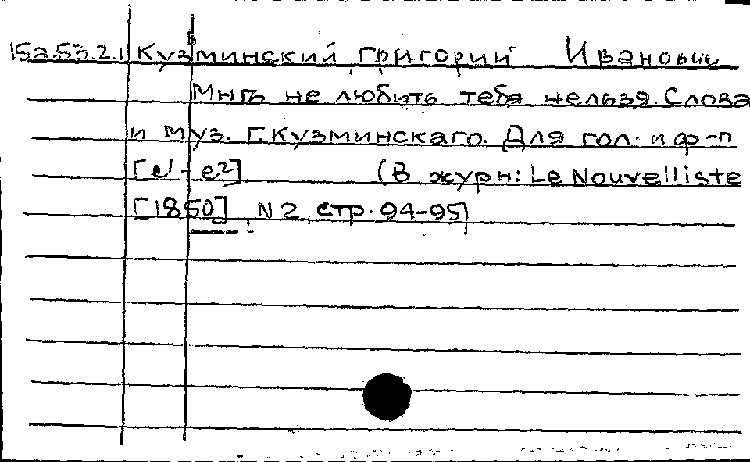 15а.53.2.1 Кузминский Григорий Иванович
Мнѣ не любить тебя нельзя. Слова
и муз. Г. Кузминскаго. Для гол. и ф-п
[e¹-e²] (В журн: Le Nouvelliste
[1850] N 2 стр. 94-95)